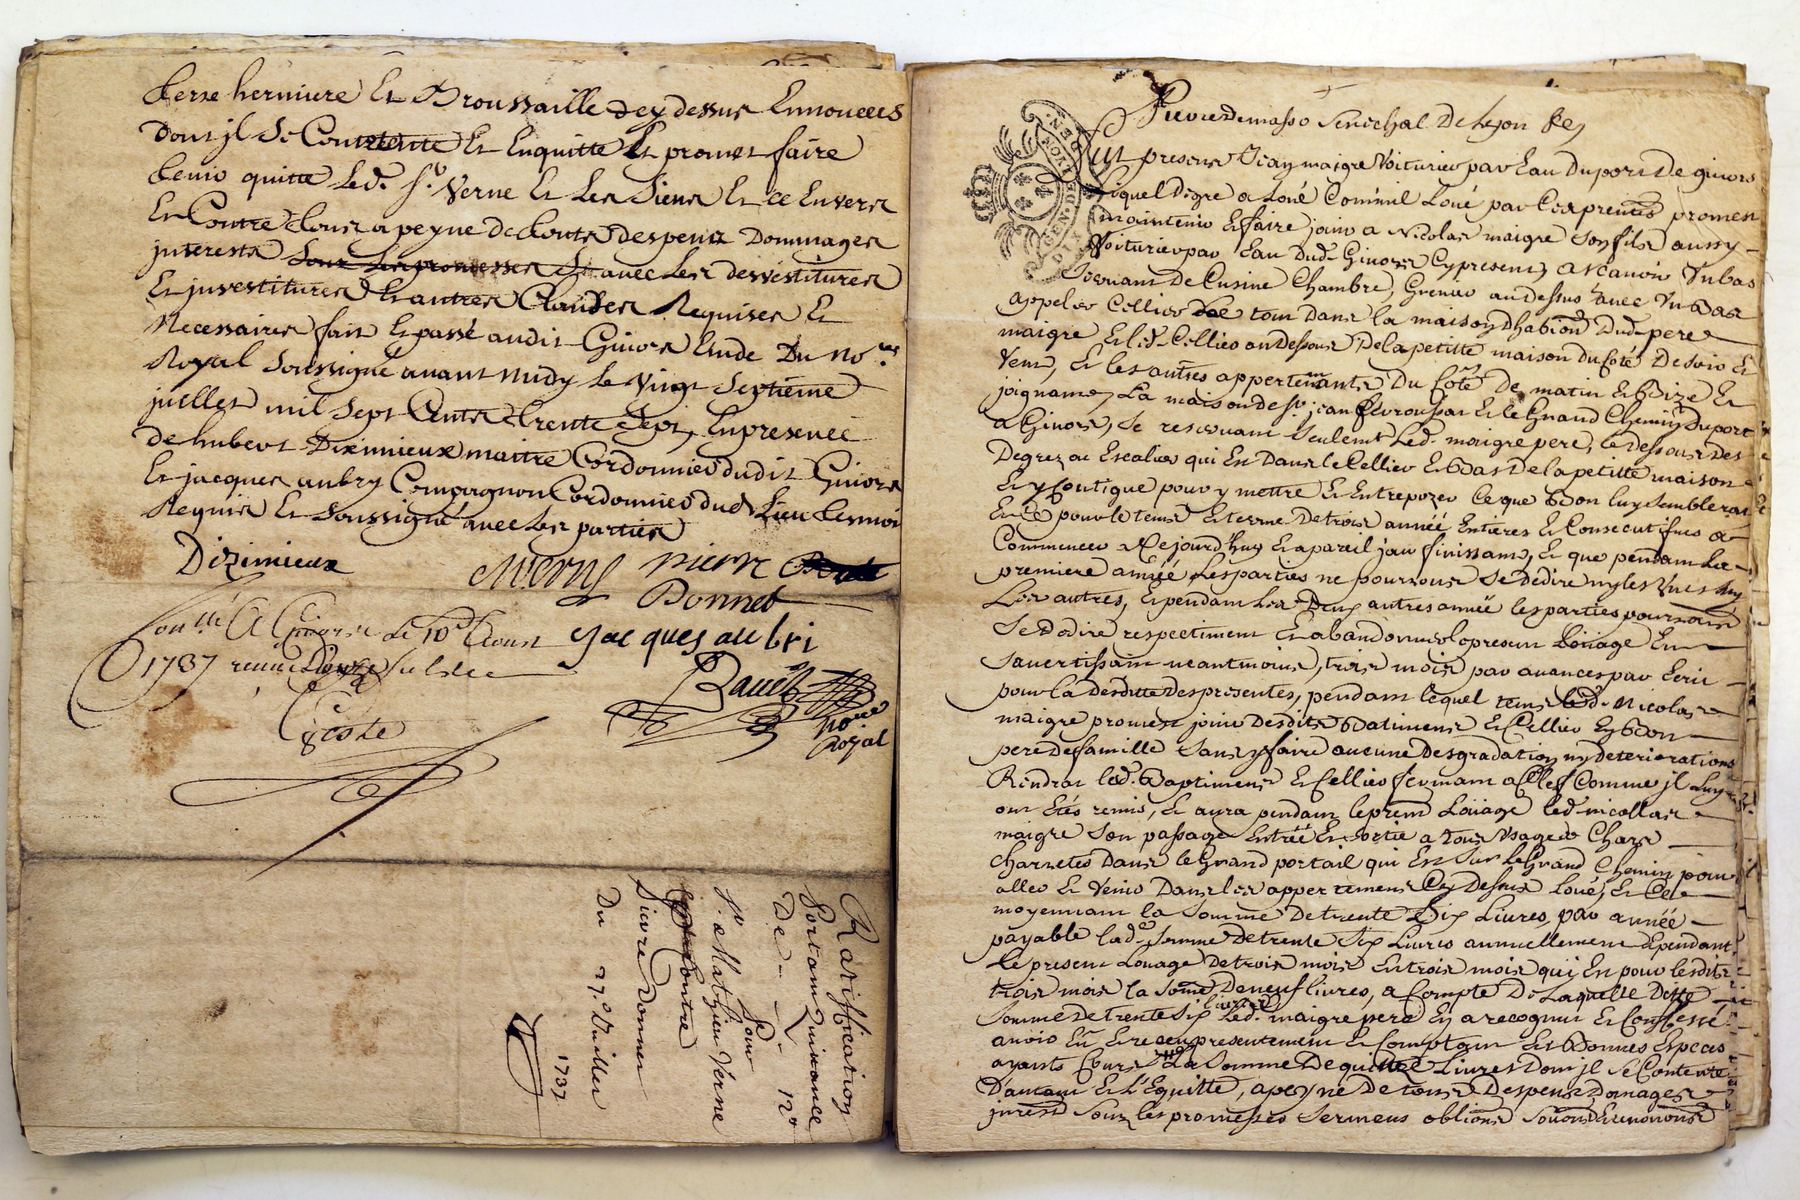 terre herniere Et Broussaille dey dessus Ennoncees
Dont jl Se Contente Et Enquitte Et promet faire
tenir quitte Led. Sr. Verne Et Les Siens Et ce Envers
Et Contre tous a peyne de touts despens Dommages
jnterests avec Les devestitures
Et jnvestitures Et autres Clauses Requises Et
Necessaires fait Et passé audit Givors Etude Du no.re
Royal Soussigné avant midy Le Vingt Septieme
juillet mil Sept Cents trente Sept, En presence
de hubert Dizimieux maitre Cordonnier dudit Givors
Et jacques aubry Compagnon Cordonnier dud. Lieu temoins
Requis Et Soussigné avec Les parties
Dizimieux
pierre
Bonnet
jacques aubri
Conllé A Givors Le 10e aoust
1737 receu douze sols
Coste
no.re
Royal
Ratiffication
Portant Quittance
De
12#
Pour
Sr. Mathieu Verne
Contre
Pierre Bonnet
Du 27e Juillet
1737
GEN. DE LYON
Pierre Demasso Senechal De Lyon
fut present Jean maigre Voiturier par Eau Du port De givors
Lequel De gré a Loué Comme il Loué par Ces presentes promet
maintenir Et faire jouir a Nicolas maigre Son fils aussy
Voiturier par Eau Dud. Givors Cy present, a Scavoir Un bas
Servant De Cuisine Chambre, Grenier au dessus avec Un bas
appellé Cellier tout Dans la maison D'habion Dud. pere
maigre Et led. Cellier au dessous De la petitte maison Du Coté De Soir Et
Vent, Et les autres appertenants Du Coté De matin Et bize Et
joignant La maison de Sr. jean ferroussat Et le Grand Chemin Du port
a Givors, Se reservant Seulemt Led. maigre pere, le dessous Des
Degrez ou Escalier qui Est Dans le Cellier Et bas De la petitte maison
Et y pour y mettre Et Entrepozer Ce que bon luy Semblerat
Et Ce pour le tems Et terme De trois année Entieres Et Consecutives a
Commencer a Ce jourd'huy Et a pareil jour finissant, Et que pendant La
premiere année Les parties ne pourront Se Dédire ny les Uns ny
Les autres, Et pendant Les Deux autres année les parties pourront
Se dedire respectivemt Et abandonner le present Loüage En
S'avertissant neantmoins, trois mois par avance par Ecrit
pour la Desditte des presentes, pendant lequel tems Led. Nicolas
maigre promet jouir Desdits batiments Et Cellier En bon
pere de famille Sans y faire aucune Desgradation ny Deteriorations
Rendrat led. Baptiments Et Cellier fermant a Clef Comme jl Luy
ont Etés remis, Et aura pendant le prent Loüage led. nicollas
maigre Son passage Entrée Et Sortie a tous Usages Chars
Charretes Dans le Grand portail qui Est Sur Le Grand Chemin pour
aller Et Venir Dans les appertements Cy Dessus Loué, Et Ce
moyennant la Somme De trente Six Livres, par année
payable lad. Somme De trente Six Livres annuellement Ependant
le present Louage De trois mois En trois mois qui Est pour lesdits
trois mois la Some De neuf livres, a Compte De Laquelle Ditte
Somme De trente Six livres Led. maigre pere En a recognu Et Confessé
avoir Eu Et receu presentement Et Comptant En bonnes Especes
ayants Cours La Somme De quinze Livres Dont jl Se Contente
D'autant Et L'Equitte, a peyne De touts Despens Domages
jnrests Sous les promesses Serments obligons Soumons Et renonons